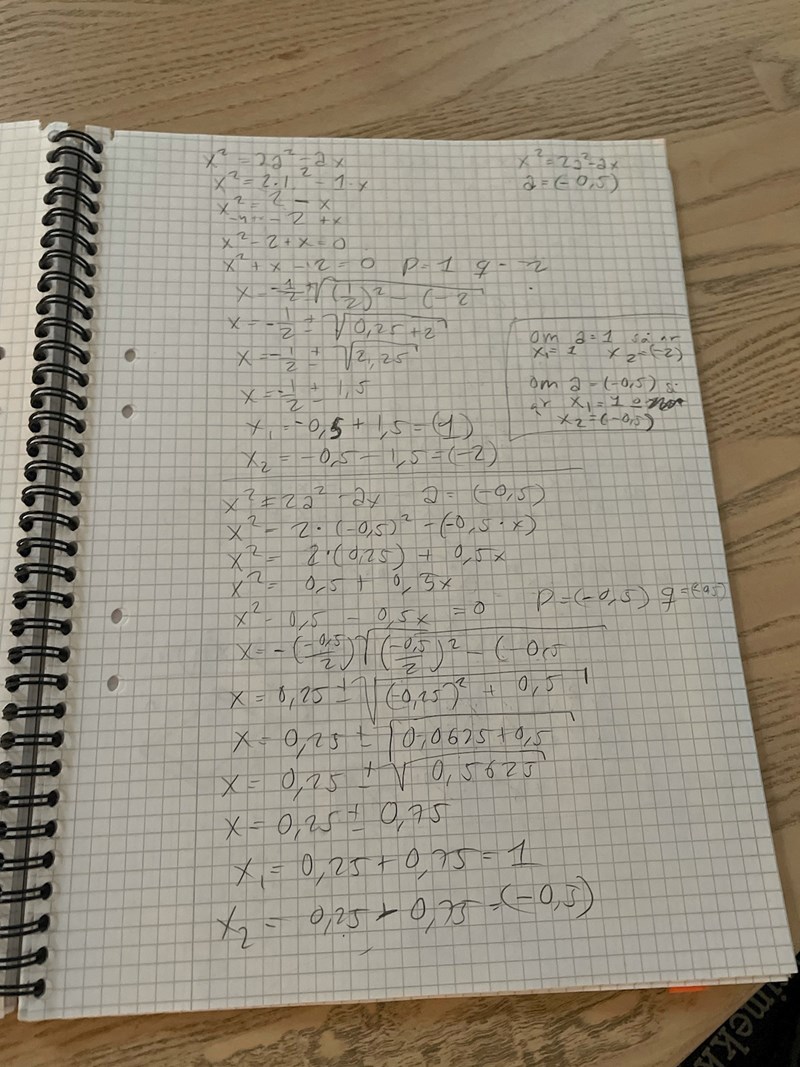 x² = 2a² - ax
x² = 2·1² - 1·x
x² = 2 - x
-2 +x
x² - 2 + x = 0
x² + x - 2 = 0 p=1 q = -2
x = -1/2 ± √(1/2)² - (-2
x = -1/2 ± √0,25+2
x = -1/2 ± √2,25
x = -1/2 ± 1,5
x₁ = -0,5 + 1,5 = (1)
x₂ = -0,5 - 1,5 = (-2)
x² = 2a² - ax
a = (-0,5)
om a = 1 så är
x₁ = 1 x₂ = (-2)
om a = (-0,5) så
är x₁ = 1 o
x₂ = (-0,5)
x² = 2a² - ax a = (-0,5)
x² = 2·(-0,5)² - (-0,5·x)
x² = 2·(0,25) + 0,5x
x² = 0,5 + 0,5x
x² - 0,5 - 0,5x = 0 p = (-0,5) q = (-0,5)
x = -(-0,5/2) √(-0,5/2)² - (-0,5
x = 0,25 ± √(-0,25)² + 0,5
x = 0,25 ± √0,0625+0,5
x = 0,25 ± √0,5625
x = 0,25 ± 0,75
x₁ = 0,25 + 0,75 = 1
x₂ = 0,25 - 0,75 = (-0,5)